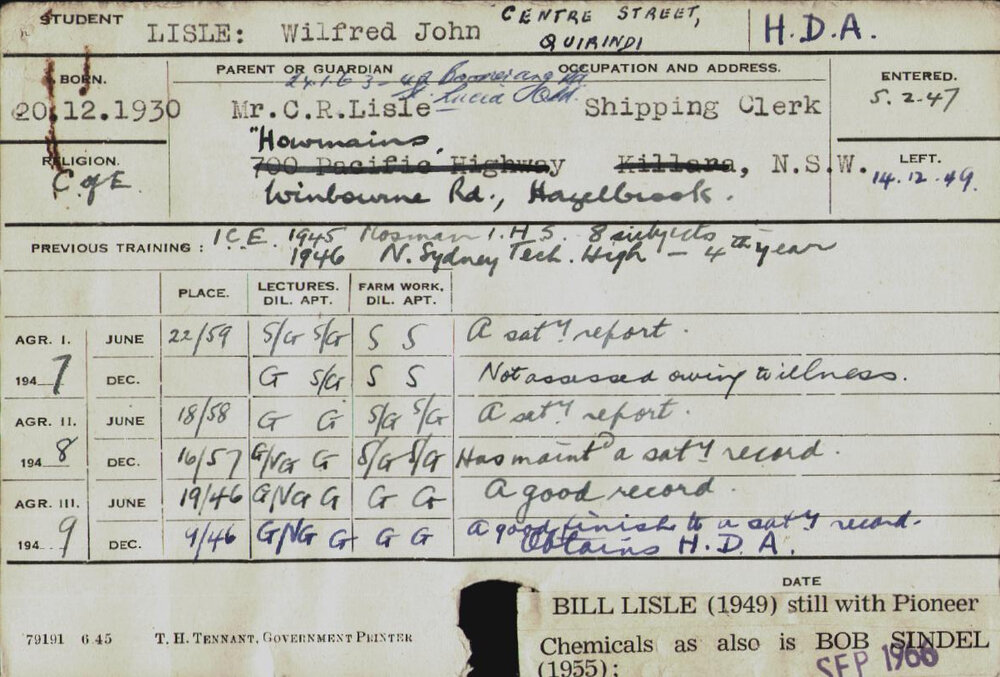 STUDENT
LISLE: Wilfred John
CENTRE STREET,
QUIRINDI
H.D.A.
BORN.
20.12.1930
PARENT OR GUARDIAN
OCCUPATION AND ADDRESS.
24.1.63 - 49 Boomerang Rd
St. Lucia Qld.
Mr.C.R.Lisle
Shipping Clerk
ENTERED.
5.2.47
"Howmains,
700 Pacific Highway Killara, N.S.W.
Winbourne Rd., Hazelbrook.
RELIGION.
C of E.
LEFT.
14.12.49.
PREVIOUS TRAINING : I.C.E. 1945 Mosman I.H.S. 8 subjects
1946 N. Sydney Tech. High - 4th year
PLACE. LECTURES. DIL. APT. FARM WORK, DIL. APT.
AGR. I. JUNE 22/59 S/G S/G S S A saty report.
1947 DEC. G S/G S S Not assessed owing to illness.
AGR. II. JUNE 18/58 G G S/G S/G A saty report.
1948 DEC. 16/57 G/VG G S/G S/G Has maintd a saty record.
AGR. III. JUNE 19/46 G/VG G G G A good record.
1949 DEC. 9/46 G/VG G G G A good finish to a saty record.
Obtains H.D.A.
DATE
BILL LISLE (1949) still with Pioneer
Chemicals as also is BOB SINDEL
(1955);
SEP 1966
79191 6.45 T. H. TENNANT, GOVERNMENT PRINTER